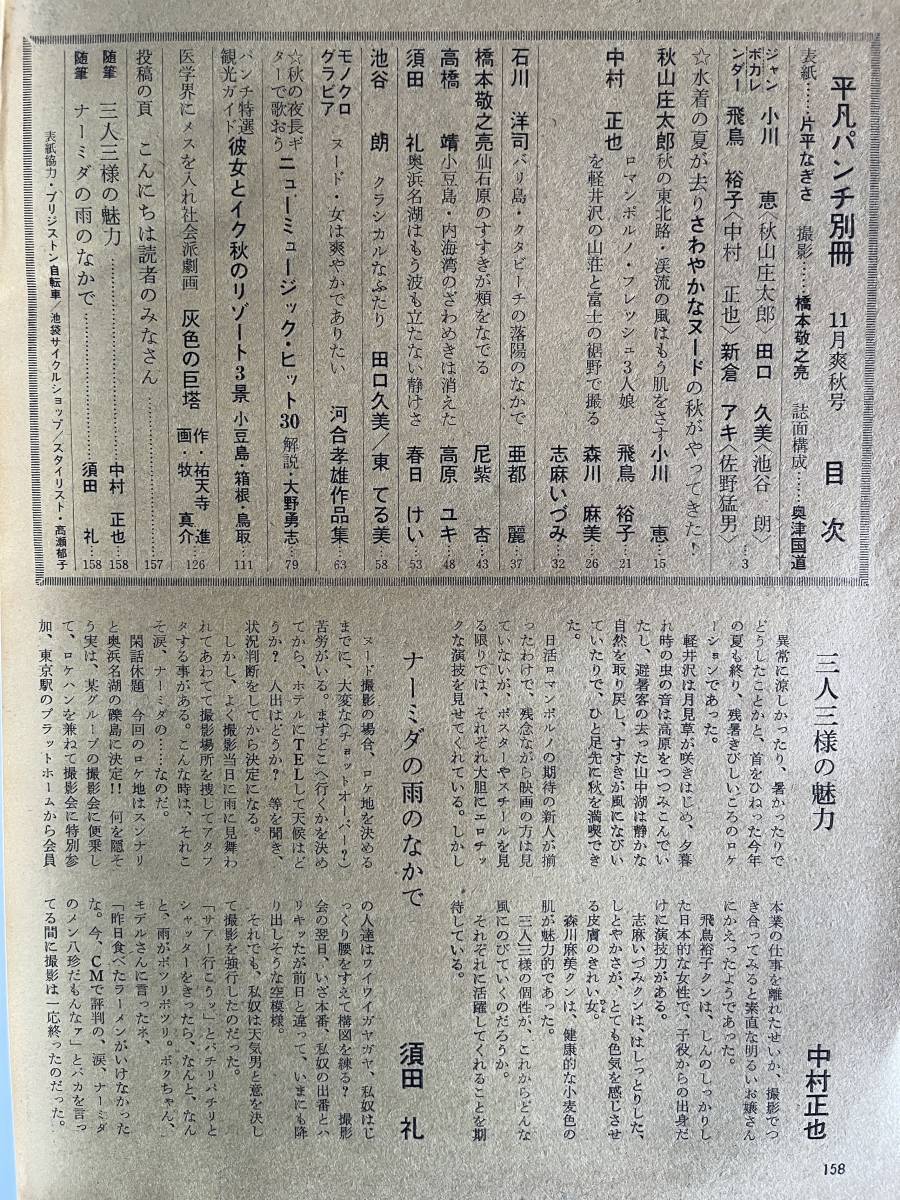 平凡パンチ別冊 11月爽秋号 目次
表紙……片平なぎさ 撮影……橋本敬之亮 誌面構成……奥津国道
ジャンボカレンダー 小川 恵〈秋山庄太郎〉田口 久美〈池谷 朗〉
飛鳥 裕子〈中村 正也〉新倉 アキ〈佐野猛男〉…3
☆水着の夏が去りさわやかなヌードの秋がやってきた♪
秋山庄太郎 秋の東北路・渓流の風はもう肌をさす 小川 恵…15
中村 正也 ロマンポルノ・フレッシュ3人娘 飛鳥 裕子…21
を軽井沢の山荘と富士の裾野で撮る 森川 麻美…26
志麻いづみ…32
石川 洋司 バリ島・クタビーチの落陽のなかで 亜都 麗…37
橋本敬之亮 仙石原のすすきが頬をなでる 尼紫 杏…43
高橋 靖 小豆島・内海湾のざわめきは消えた 高原 ユキ…48
須田 礼 奥浜名湖はもう波も立たない静けさ 春日 けい…53
池谷 朗 クラシカルなふたり 田口久美/東 てる美…58
モノクログラビア ヌード・女は爽やかでありたい 河合孝雄作品集…63
☆秋の夜長ギターで歌おう ニューミュージック・ヒット30 解説・大野勇志…79
パンチ特選観光ガイド 彼女とイク秋のリゾート3景 小豆島・箱根・鳥取…111
医学界にメスを入れ社会派劇画 灰色の巨塔 作・祐天寺 進 画・牧 真介…126
投稿の頁 こんにちは読者のみなさん…157
随筆 三人三様の魅力…中村 正也…158
随筆 ナーミダの雨のなかで…須田 礼…158
表紙協力・ブリジストン自転車/池袋サイクルショップ/スタイリスト・高瀬郁子
三人三様の魅力
中村正也
異常に涼しかったり、暑かったりで
どうしたことかと、首をひねった今年
の夏も終り、残暑きびしいころのロケ
ーションであった。
軽井沢は月見草が咲きはじめ、夕暮
れ時の虫の音は高原をつつみこんでい
たし、避暑客の去った山中湖は静かな
自然を取り戻し、すすきが風になびい
ていたりで、ひと足先に秋を満喫でき
た。
日活ロマンポルノの期待の新人が揃
ったわけで、残念ながら映画の方は見
ていないが、ポスターやスチールを見
る限りでは、それぞれ大胆にエロチッ
クな演技を見せてくれている。しかし
本業の仕事を離れたせいか、撮影でつ
き合ってみると素直な明るいお嬢さん
にかえったようであった。
飛鳥裕子クンは、しんのしっかりし
た日本的な女性で、子役からの出身だ
けに演技力がある。
志麻いづみクンは、はしっとりした、
しとやかさが、とても色気を感じさせ
る皮膚のきれい女。
森川麻美クンは、健康的な小麦色の
肌が魅力的であった。
三人三様の個性が、これからどんな
風にのびていくのだろうか。
それぞれに活躍してくれることを期
待している。
ナーミダの雨のなかで
須田 礼
ヌード撮影の場合、ロケ地を決める
までに、大変な(チョットオーバー?)
苦労がいる。まずどこへ行くかを決め
てから、ホテルにTELして天候はど
うか? 人出はどうか? 等を聞き、
状況判断をしてから決定になる。
しかし、よく撮影当日に雨に見舞わ
れてあわてて撮影場所を捜してアタフ
タする事がある。こんな時は、それこ
そ涙、ナーミダの……なのだ。
閑話休題 今回のロケ地はスンナリ
と奥浜名湖の礫島に決定!! 何を隠そ
う実は、某グループの撮影会に便乗し
て、ロケハンを兼ねて撮影会に特別参
加、東京駅のプラットホームから会員
の人達はワイワイガヤガヤ、私奴はじ
っくり腰をすえて構図を練る? 撮影
会の翌日、いざ本番、私奴の出番とハ
リキッたが前日と違って、いまにも降
り出しそうな空模様。
それでも、私奴は天気男と意を決し
て撮影を強行したのだった。
「サアー行こうッ」とパチリパチリと
シャッターをきったら、なんと、なん
と、雨がポツリポツリ。ボクちゃん、
モデルさんに言ったネ、
「昨日食べたラーメンがいけなかった
な。今、CMで評判の、涙、ナーミダ
のメン八珍だもんなァ」とバカを言っ
てる間に撮影は一応終ったのだった。
158